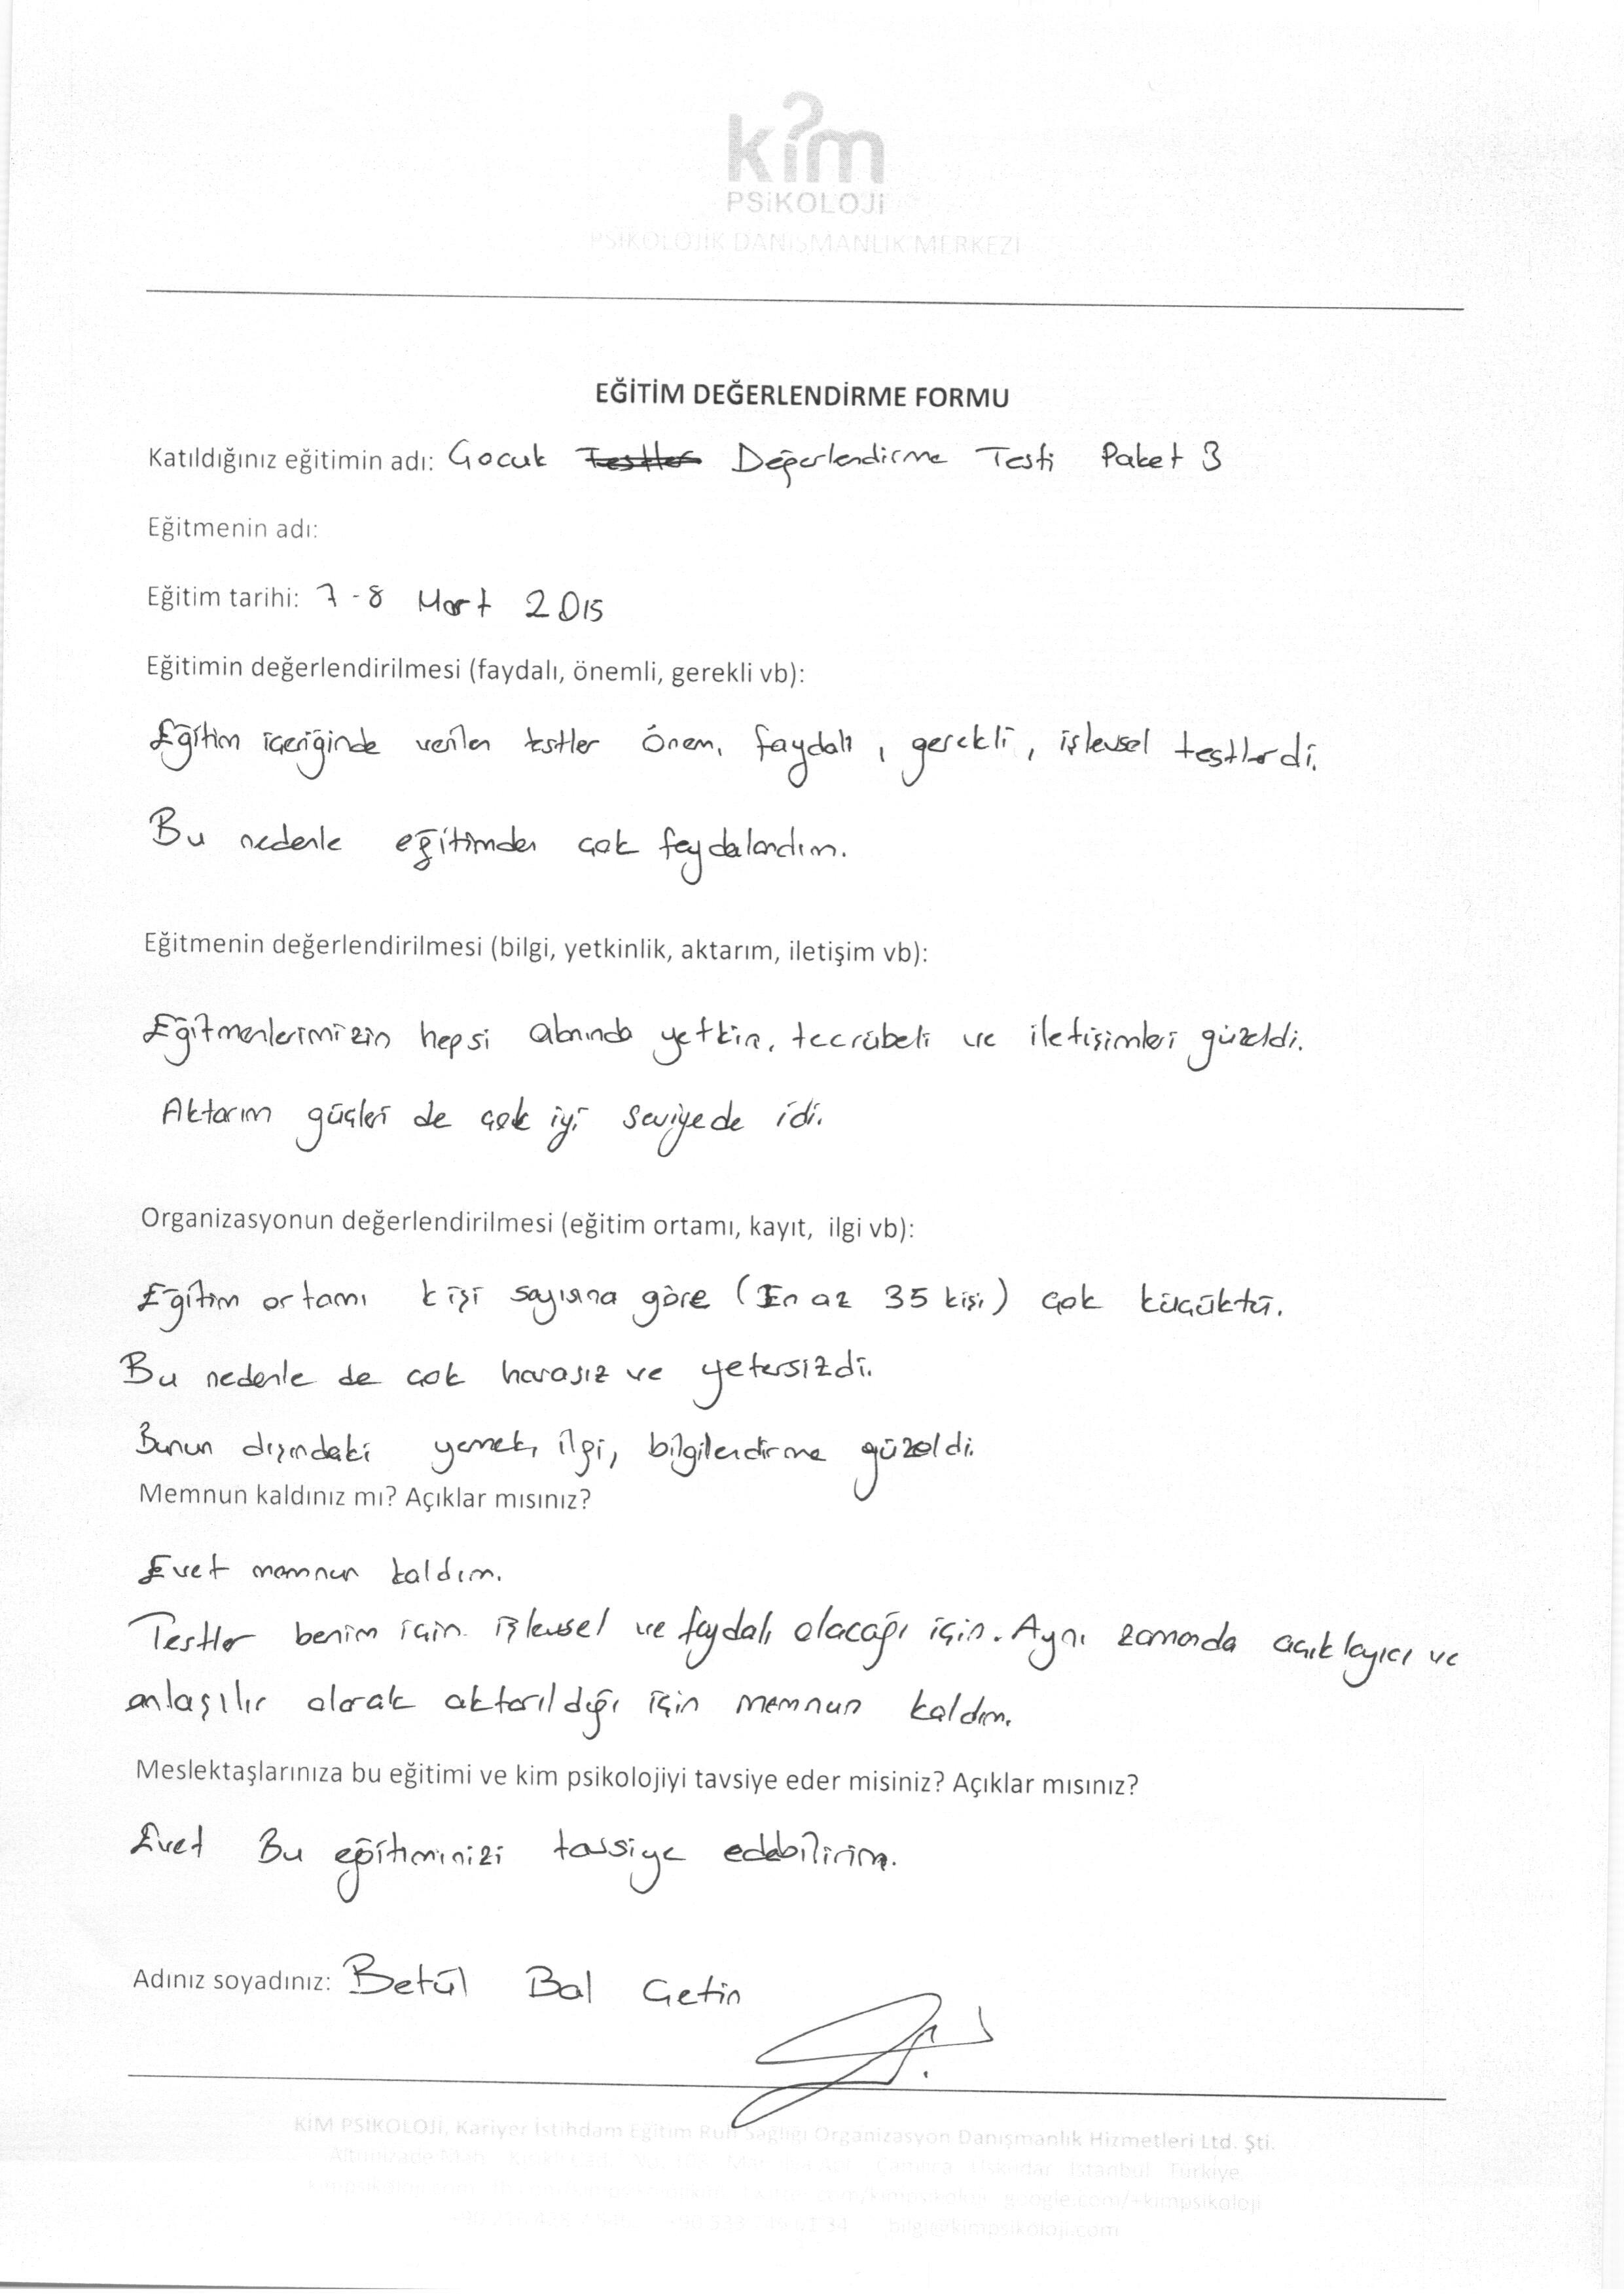 kim
PSİKOLOJİ
PSİKOLOJİK DANIŞMANLIK MERKEZİ
EĞİTİM DEĞERLENDİRME FORMU
Katıldığınız eğitimin adı: Çocuk Testler Değerlendirme Testi Paket 3
Eğitmenin adı:
Eğitim tarihi: 7-8 Mart 2015
Eğitimin değerlendirilmesi (faydalı, önemli, gerekli vb):
Eğitim içeriğinde verilen testler önem, faydalı, gerekli, işlevsel testlerdi.
Bu nedenle eğitimden çok faydalandım.
Eğitmenin değerlendirilmesi (bilgi, yetkinlik, aktarım, iletişim vb):
Eğitmenlerimizin hepsi alanında yetkin, tecrübeli ve iletişimleri güzeldi.
Aktarım güçleri de çok iyi seviyede idi.
Organizasyonun değerlendirilmesi (eğitim ortamı, kayıt, ilgi vb):
Eğitim ortamı kişi sayısına göre (En az 35 kişi) çok küçüktü.
Bu nedenle de çok havasız ve yetersizdi.
Bunun dışındaki yemek, ilgi, bilgilendirme güzeldi.
Memnun kaldınız mı? Açıklar mısınız?
Evet memnun kaldım.
Testler benim için işlevsel ve faydalı olacağı için. Aynı zamanda açıklayıcı ve
anlaşılır olarak aktarıldığı için memnun kaldım.
Meslektaşlarınıza bu eğitimi ve kim psikolojiyi tavsiye eder misiniz? Açıklar mısınız?
Evet Bu eğitiminizi tavsiye edebilirim.
Adınız soyadınız: Betül Bal Çetin
KİM PSİKOLOJİ, Kariyer İstihdam Eğitim Ruh Sağlığı Organizasyon Danışmanlık Hizmetleri Ltd. Şti.
Altunizade Üsküdar İstanbul Türkiye
google.com/+kimpsikoloji
bilgi@kimpsikoloji.com